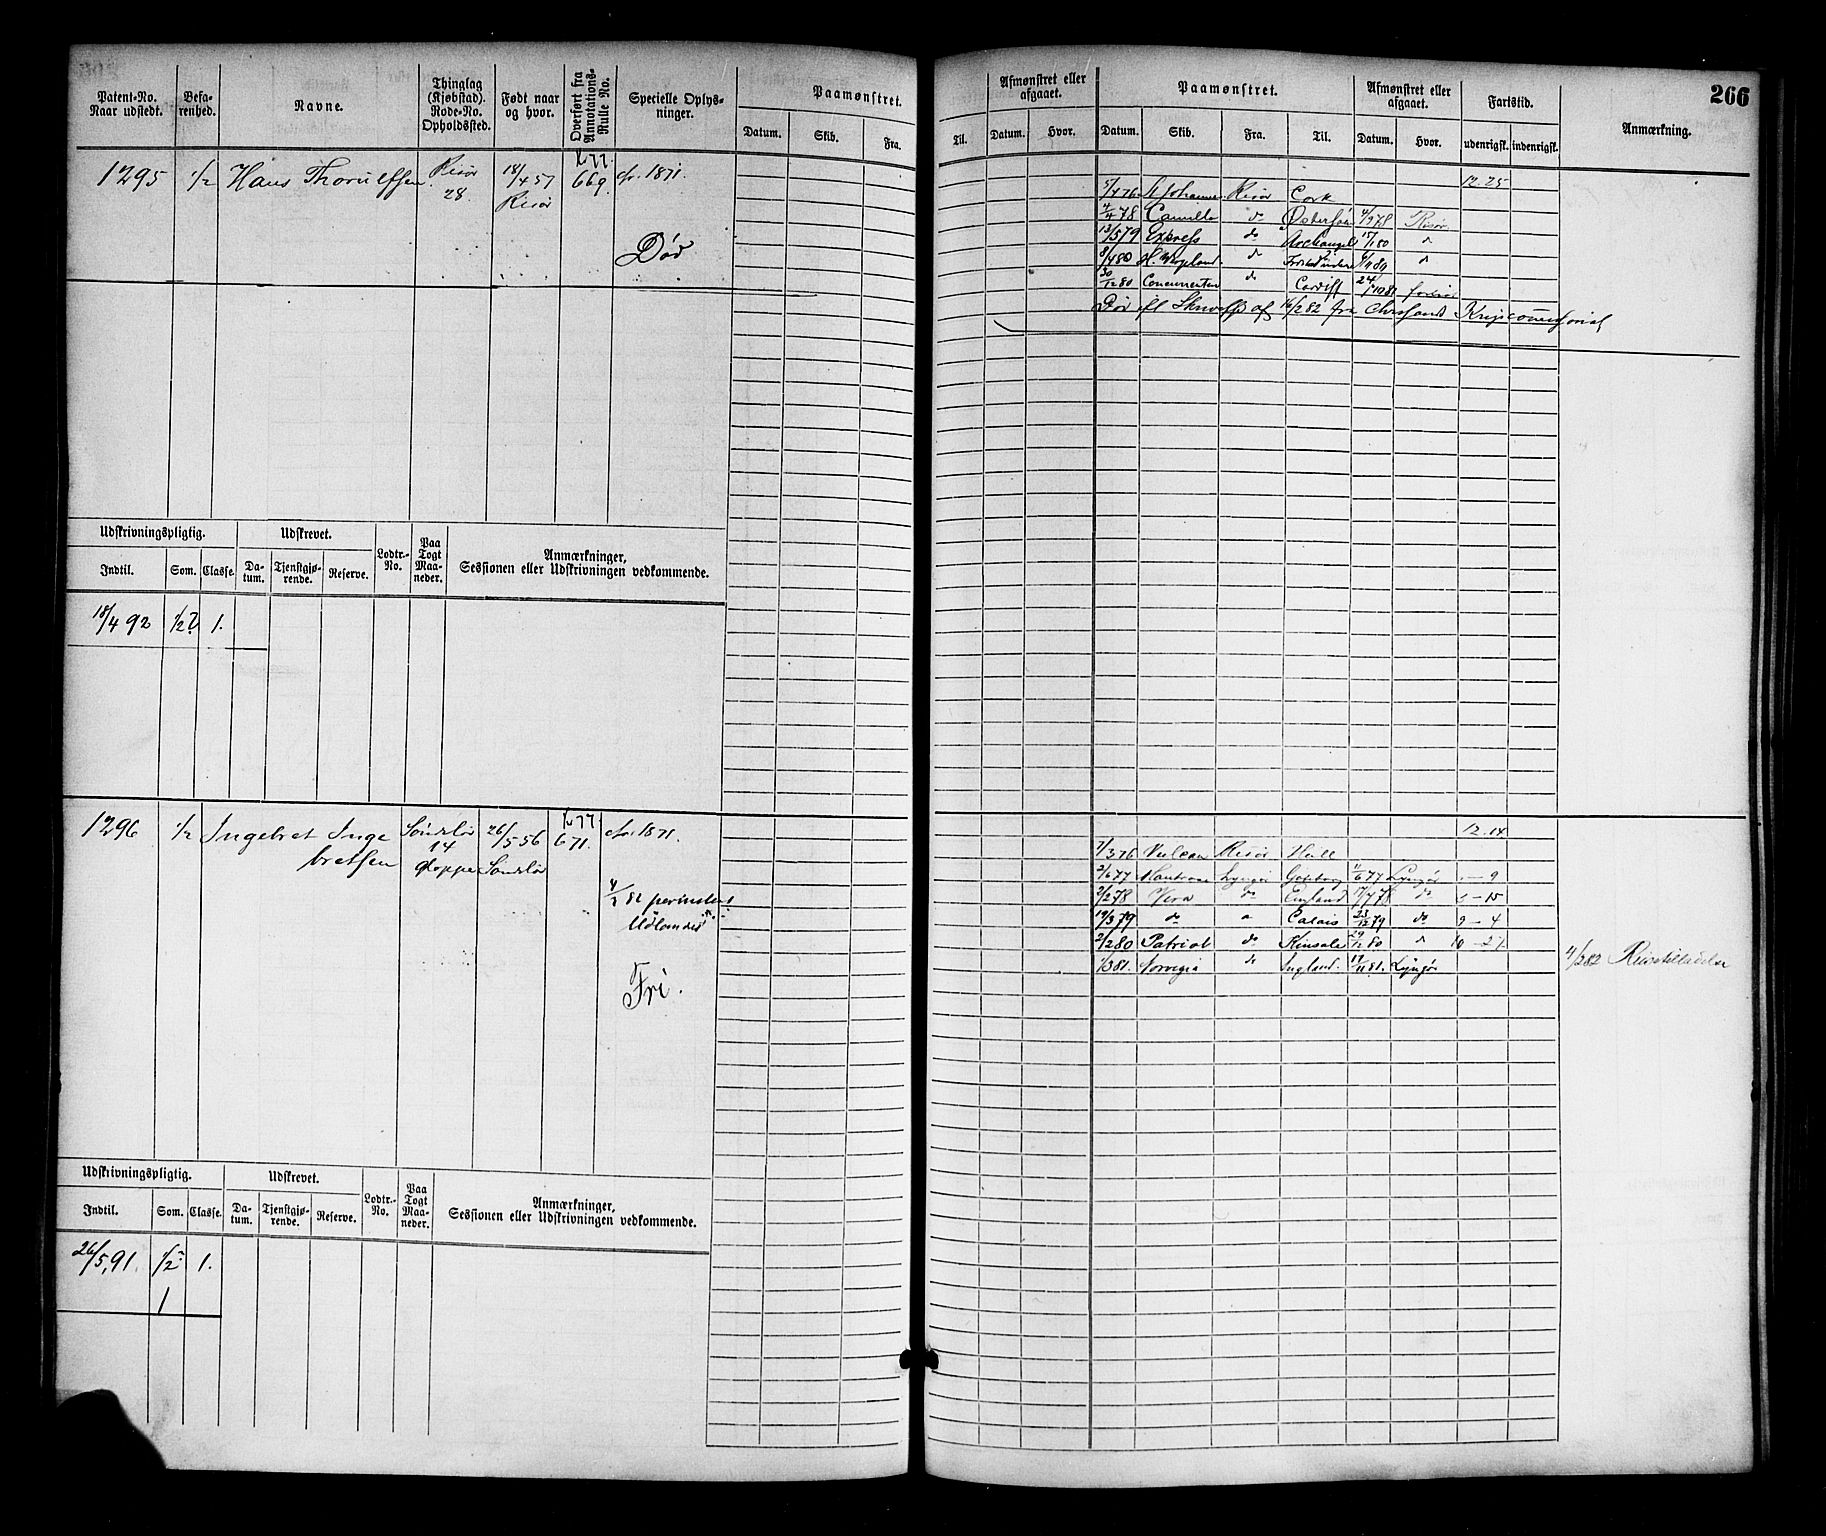 266
Patent-No. Naar udstedt.
Befarenhed.
Navne.
Thinglag (Kjøbstad). Rode-No. Opholdssted.
Født naar og hvor.
Overført fra Annotations-Rulle No.
Specielle Oplysninger.
Paamønstret.
Datum. Skib. Fra.
Til.
Afmønstret eller afgaaet.
Datum. Hvor.
Paamønstret.
Datum. Skib. Fra. Til.
Afmønstret eller afgaaet.
Datum. Hvor.
Fartstid.
udenrigsk. indenrigsk.
Anmærkning.
1295 1/2 Hans Thorulfsen Risør 18/4 57 669 1871.
28. Risør
Død
12.25
5/4 76 Risør Cork
4/4 78 Camilla do 4/9 78 Risør
13/5 79 Express do Archangel 15/1 80
8/4 80
30/12 80 do Cardiff 24/10 81
Død 16/2 82 fra
Udskrivningspligtig. Udskrevet.
Indtil. Som. Classe. Datum. Tjenstgjørende. Reserve. Lodtr.-No. Paa Togt Maaneder.
Anmærkninger,
Sessionen eller Udskrivningen vedkommende.
18/4 92 1/2 1.
1296 1/2 Ingebret Inge 26/5 56 671. 1871.
bretsen 14
Fri.
12.14
7/3 76 Vulcan Risør Hull
2/6 77 Lyngør 11/6 77 Lyngør - 9
2/2 78 Vera do England 17/4 78 do - 15
19/3 79 do Calais 23/12 79 do 9 - 4
2/2 80 Patriot do Kinsale 29/12 80 10 - 27
1/3 81. Norvegia do England. 17/11 81. Lyngør
4/2 82 Reisetilladelse
Udskrivningspligtig. Udskrevet.
Indtil. Som. Classe. Datum. Tjenstgjørende. Reserve. Lodtr.-No. Paa Togt Maaneder.
Anmærkninger,
Sessionen eller Udskrivningen vedkommende.
26/5 91. 1/2 1.
1